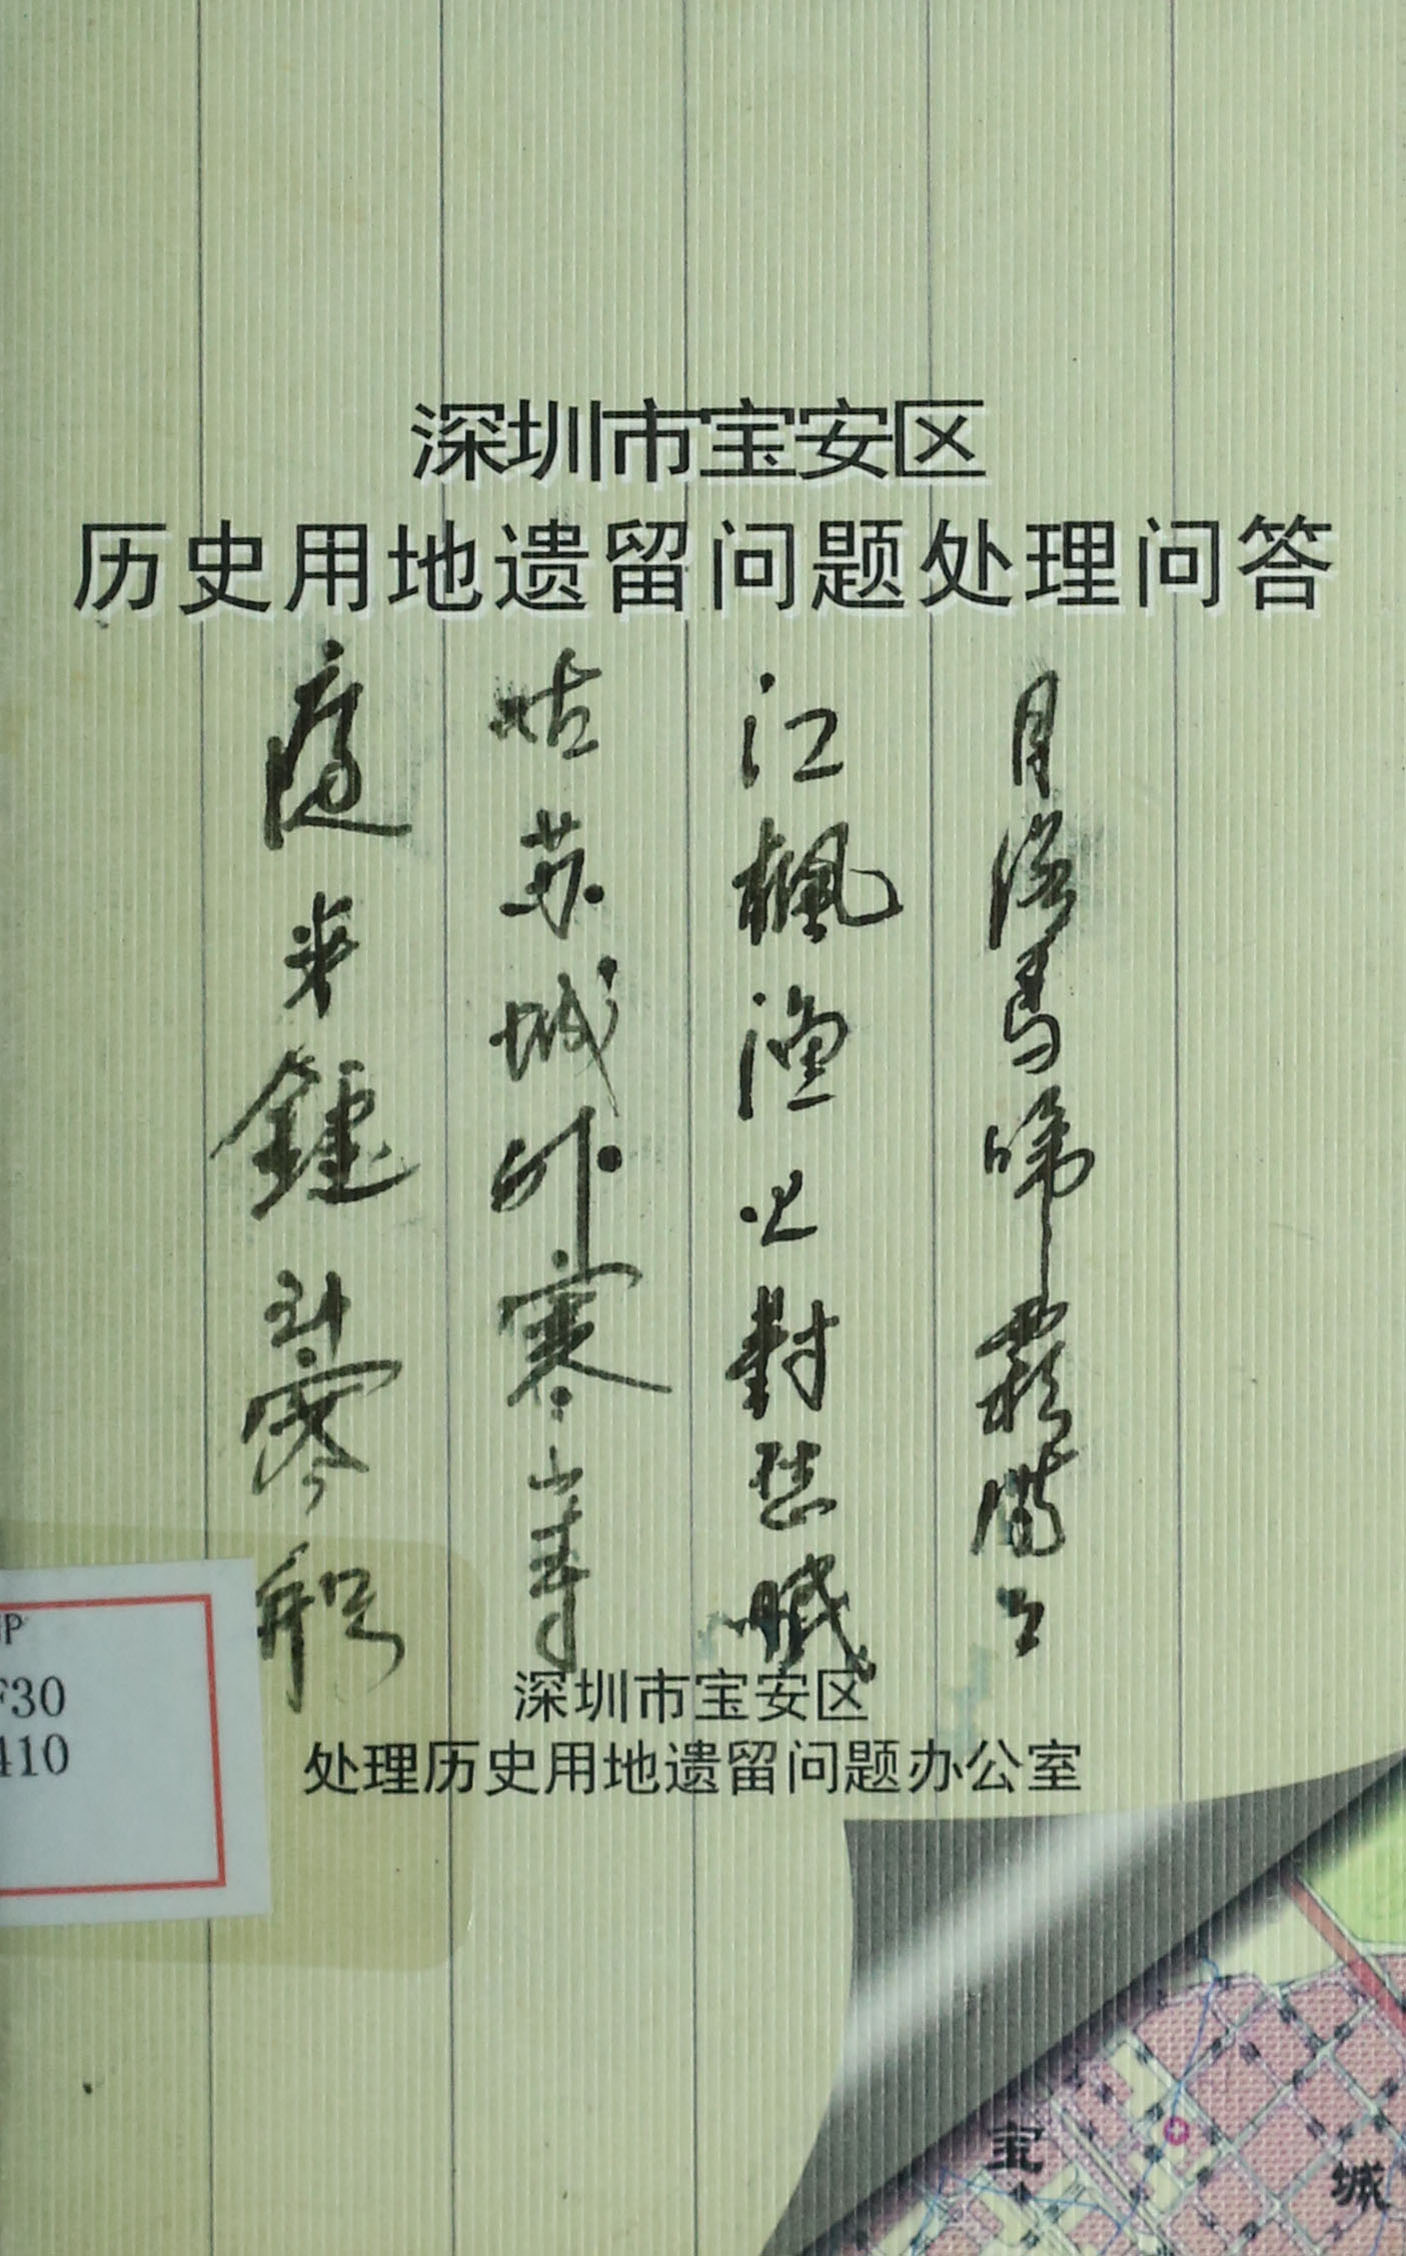 深圳市宝安区
历史用地遗留问题处理问答
月落烏啼霜滿
江楓漁火對愁眠
姑苏城外寒山寺
夜半鐘到客船
深圳市宝安区
处理历史用地遗留问题办公室
F30
410
宝
城